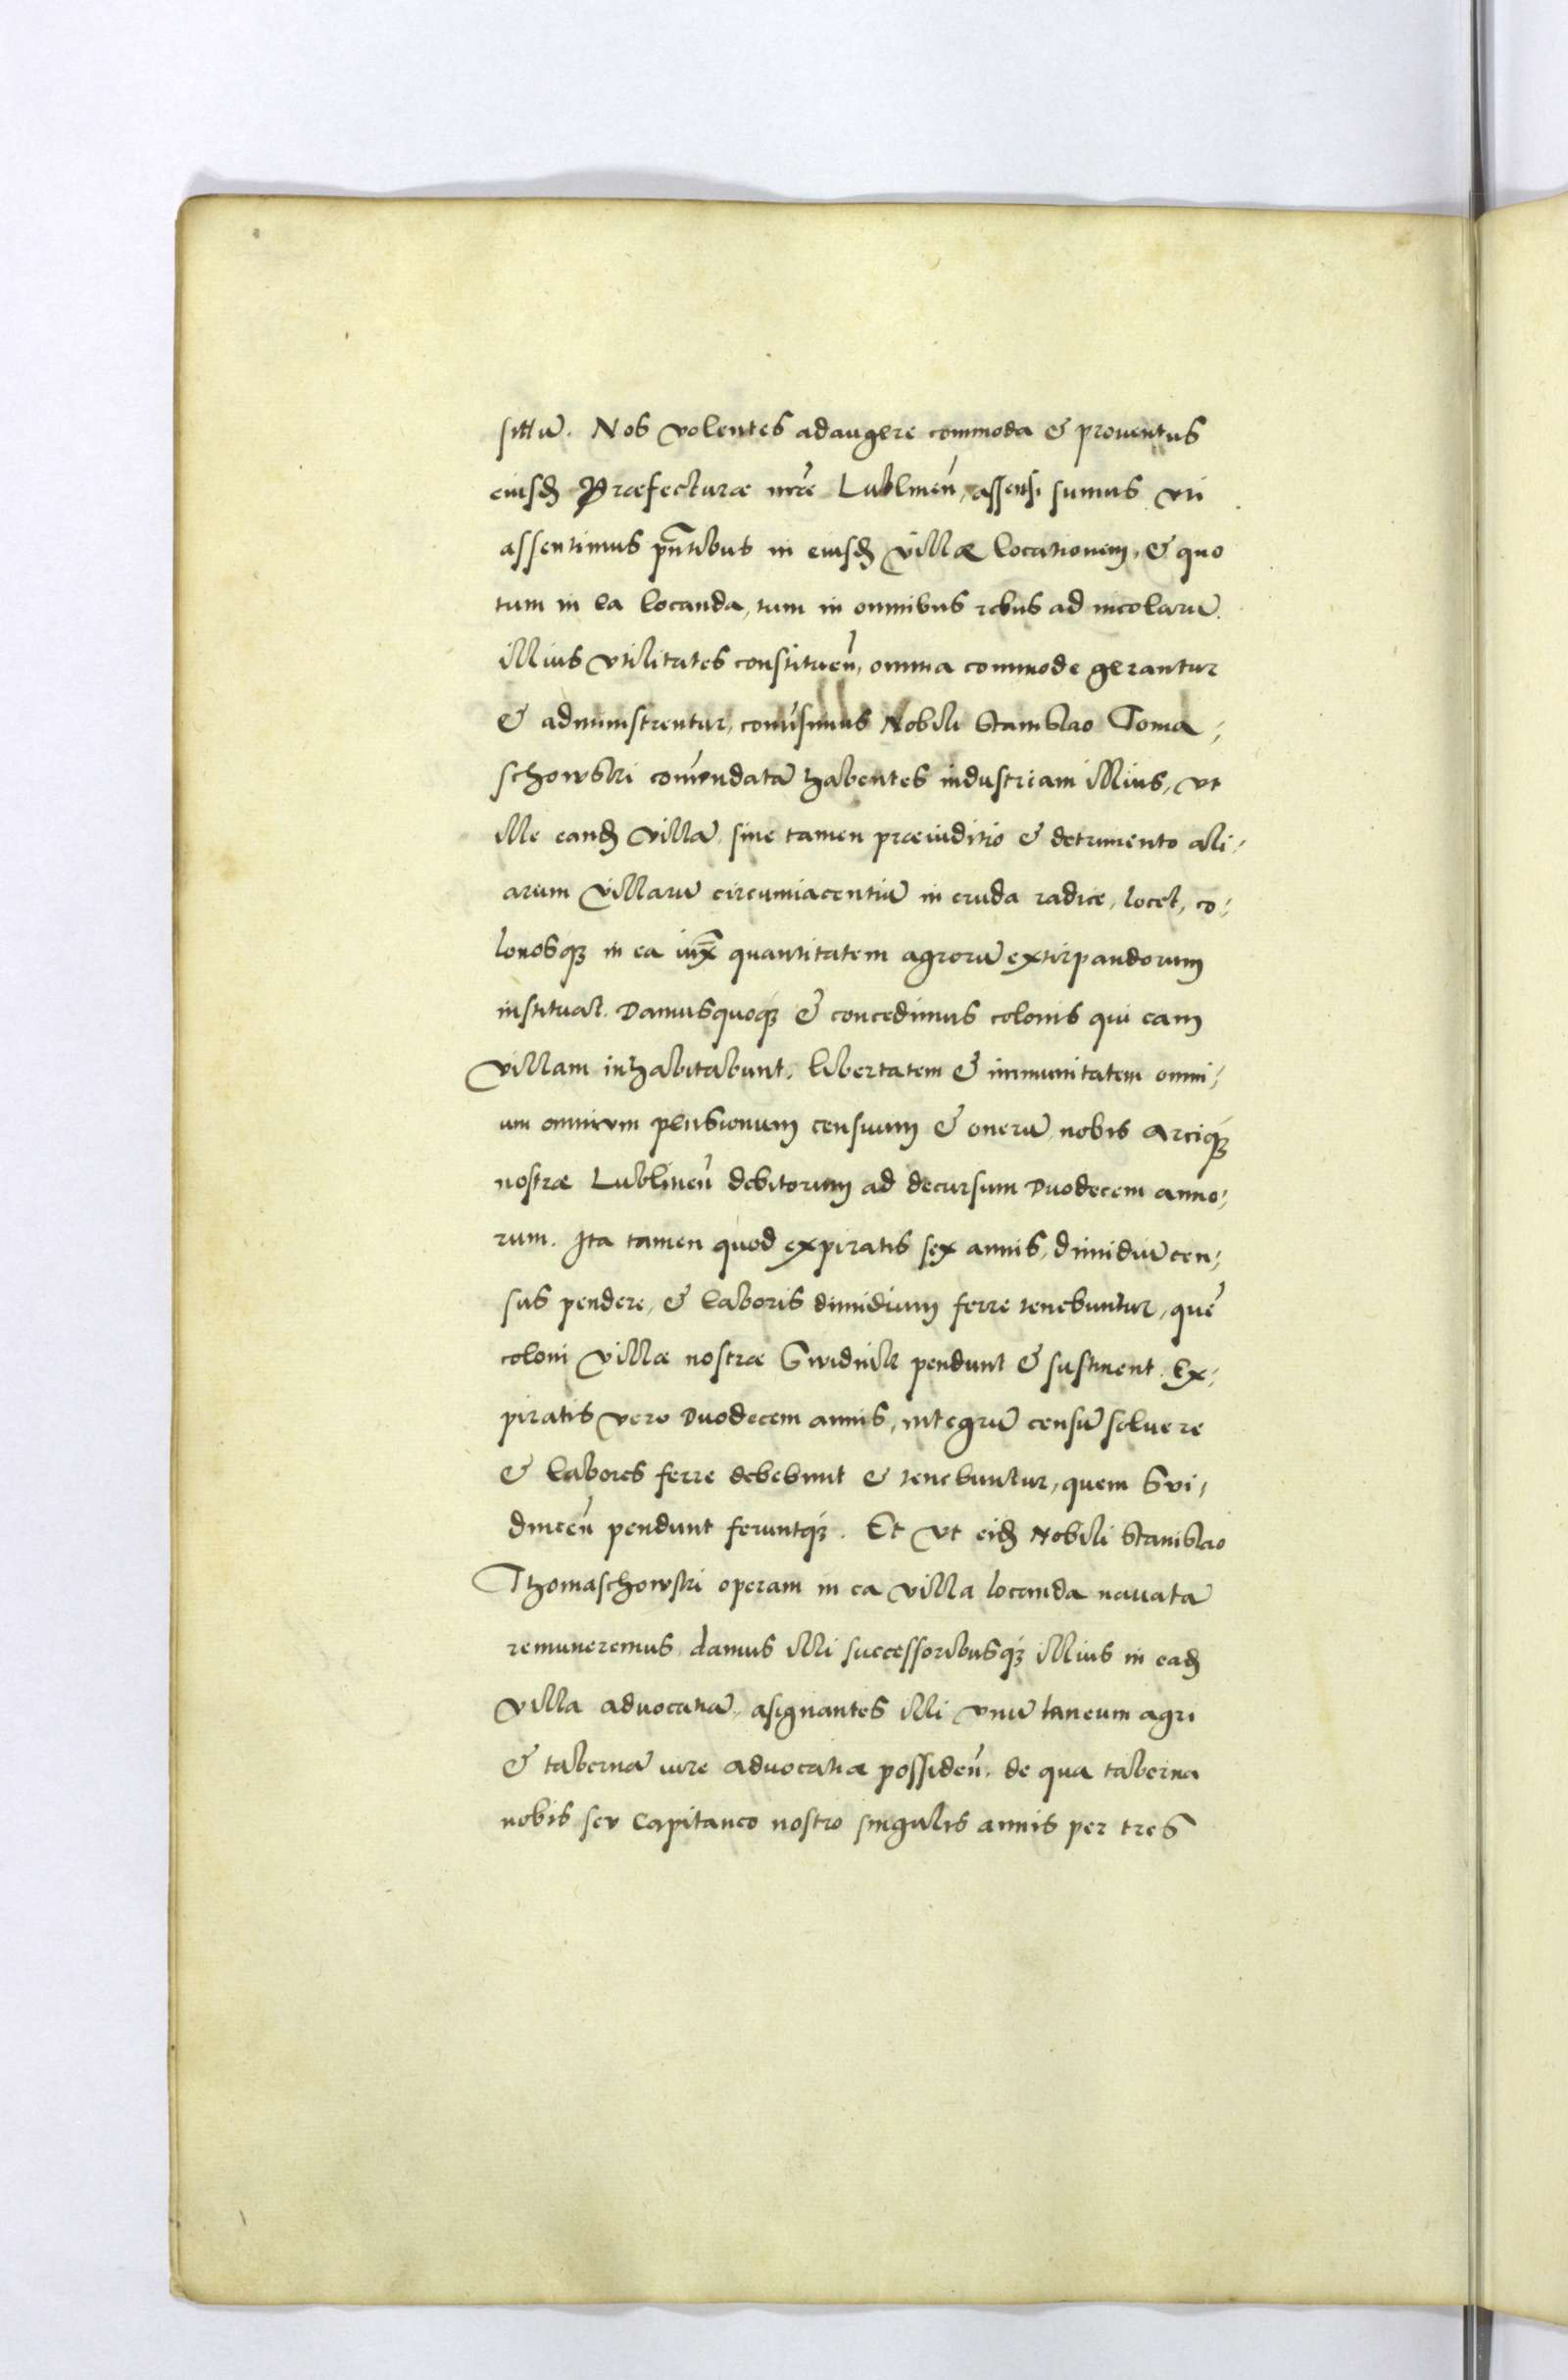 sittū. Nos volentes adaugere commoda & proventus
eiusd Præfecturæ nr̃e Lublineñ, assensi sumus uti
assentimus pñtibus in eiusd villæ locationem, & quo
tum in ea locanda, tum in omnibus rebus ad incolarū
illius utilitates constitueñ, omnia commode gerantur
& administrentur, com̃isimus Nobili Stanislao Toma-
schowski com̃endatā habentes industriam illius, ut
ille eand villā sine tamen præiuditio & detrimento ali-
arum villarū circumiacentiū in cruda radice, locet, co-
lonosq3 in ea iux̃ quantitatem agrorū extirpandorum
instituat. Damus quoq3 & concedimus colonis qui eam
villam inhabitabunt, libertatem & immunitatem omni-
um omnium pensionum censuum & onerū nobis Arciq3
nostræ Lublineñ debitorum ad decursum Duodecem anno-
rum. Ita tamen quod expiratis sex annis, dimidiū cen-
sus pendere, & laboris dimidium ferre tenebuntur, quē
coloni villæ nostræ Swidnik pendunt & sustinent. Ex-
piratis vero Duodecem annis, integrū censū solvere
& labores ferre debebunt & tenebuntur, quem Svi-
dniceñ pendunt feruntq3. Et ut eid Nobili Stanislao
Thomaschowski operam in ea villa locanda navatā
remuneremus, damus illi successoribusq3 illius in ead
villa advocatiā, asignantes illi unū laneum agri
& tabernā iure advocatiæ possideñ. de qua taberna
nobis seu Capitaneo nostro singulis annis per tres